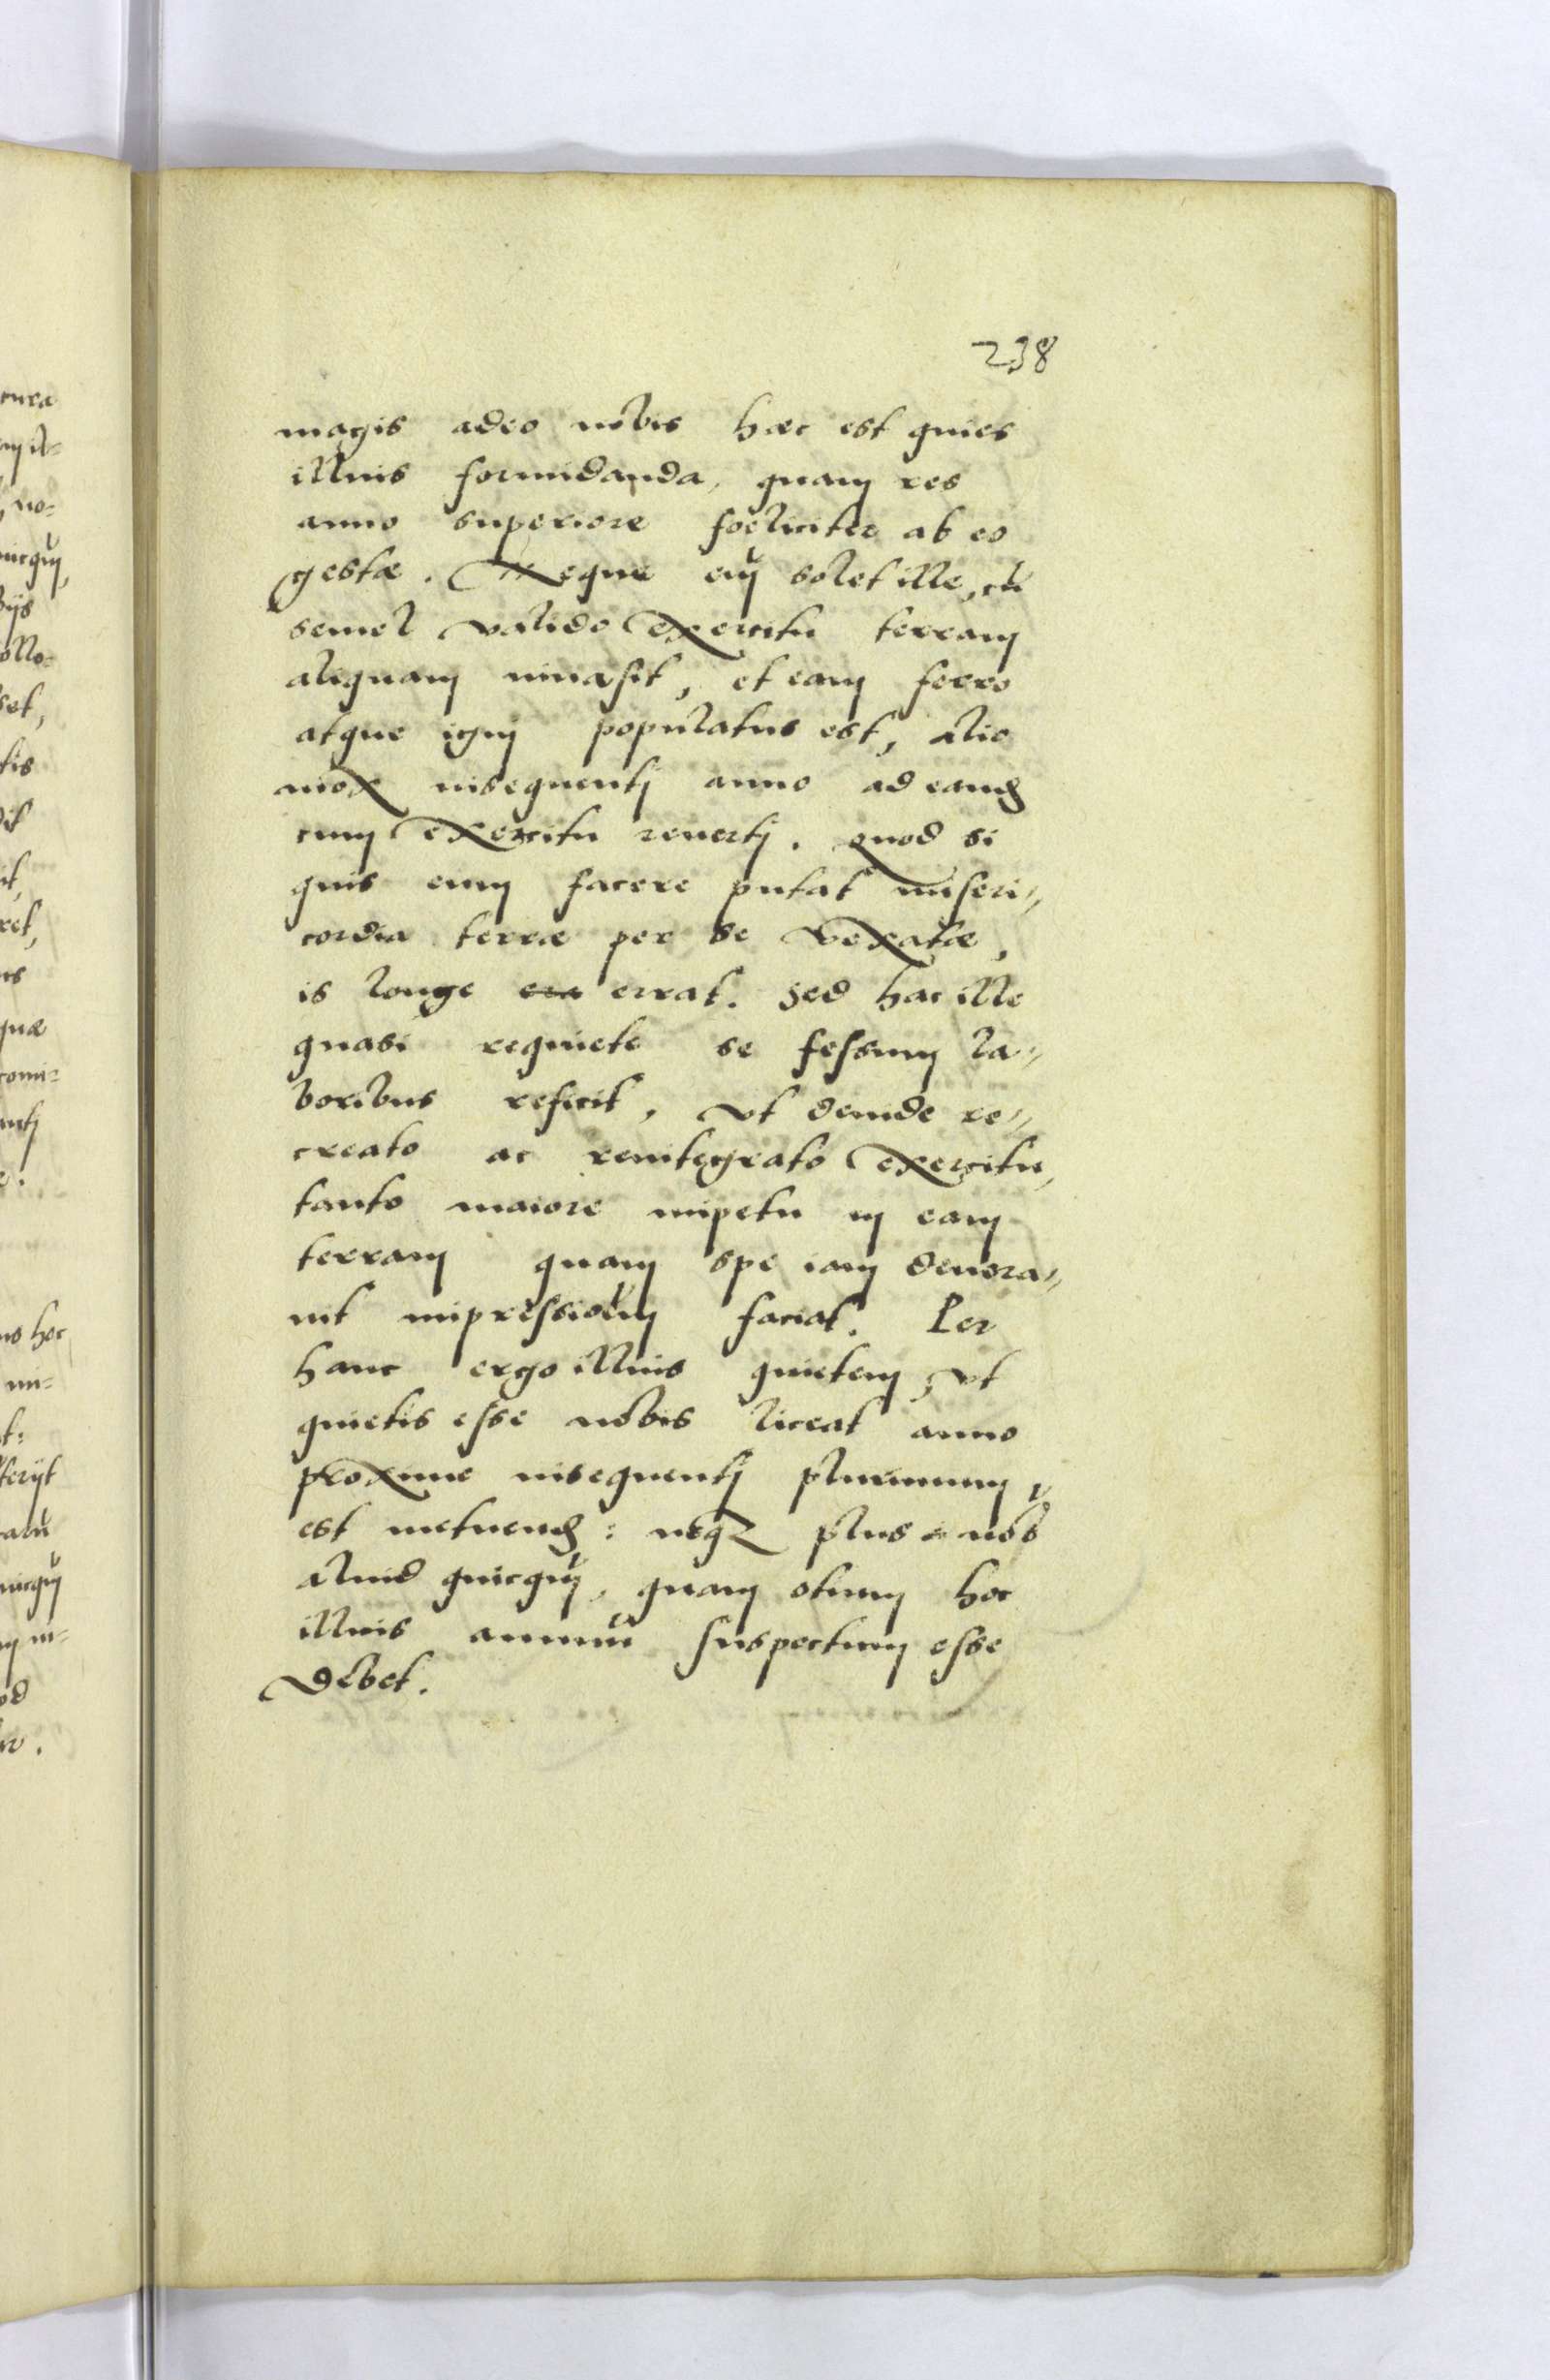 238
magis adeo nobis hæc est quies
illius formidanda, quam res
anno superiore foeliciter ab eo
gestæ. Neque em̃ solet ille, cũ
semel valido exercitu terram
aliquam inuasit, et eam ferro
atque igni populatus est, alio
mox insequenti anno ad eand
cum exercitu reuerti. Quod si
quis eum facere putat miseri=
cordia terræ per se vexatæ,
is longe errat. Sed hac ille
quasi requiete se fessum la=
boribus reficit, vt deinde re=
creato ac reintegrato exercitu,
tanto maiore impetu in eam
terram quam spe iam deuora=
uit impressioẽm faciat. Per
hanc ergo illius quietem, vt
quietis esse nobis liceat anno
proxime insequenti plurimum
est metuend: neq3 plus nob
aliud quicquã, quam otium hoc
illius annuũ suspectum esse
debet.